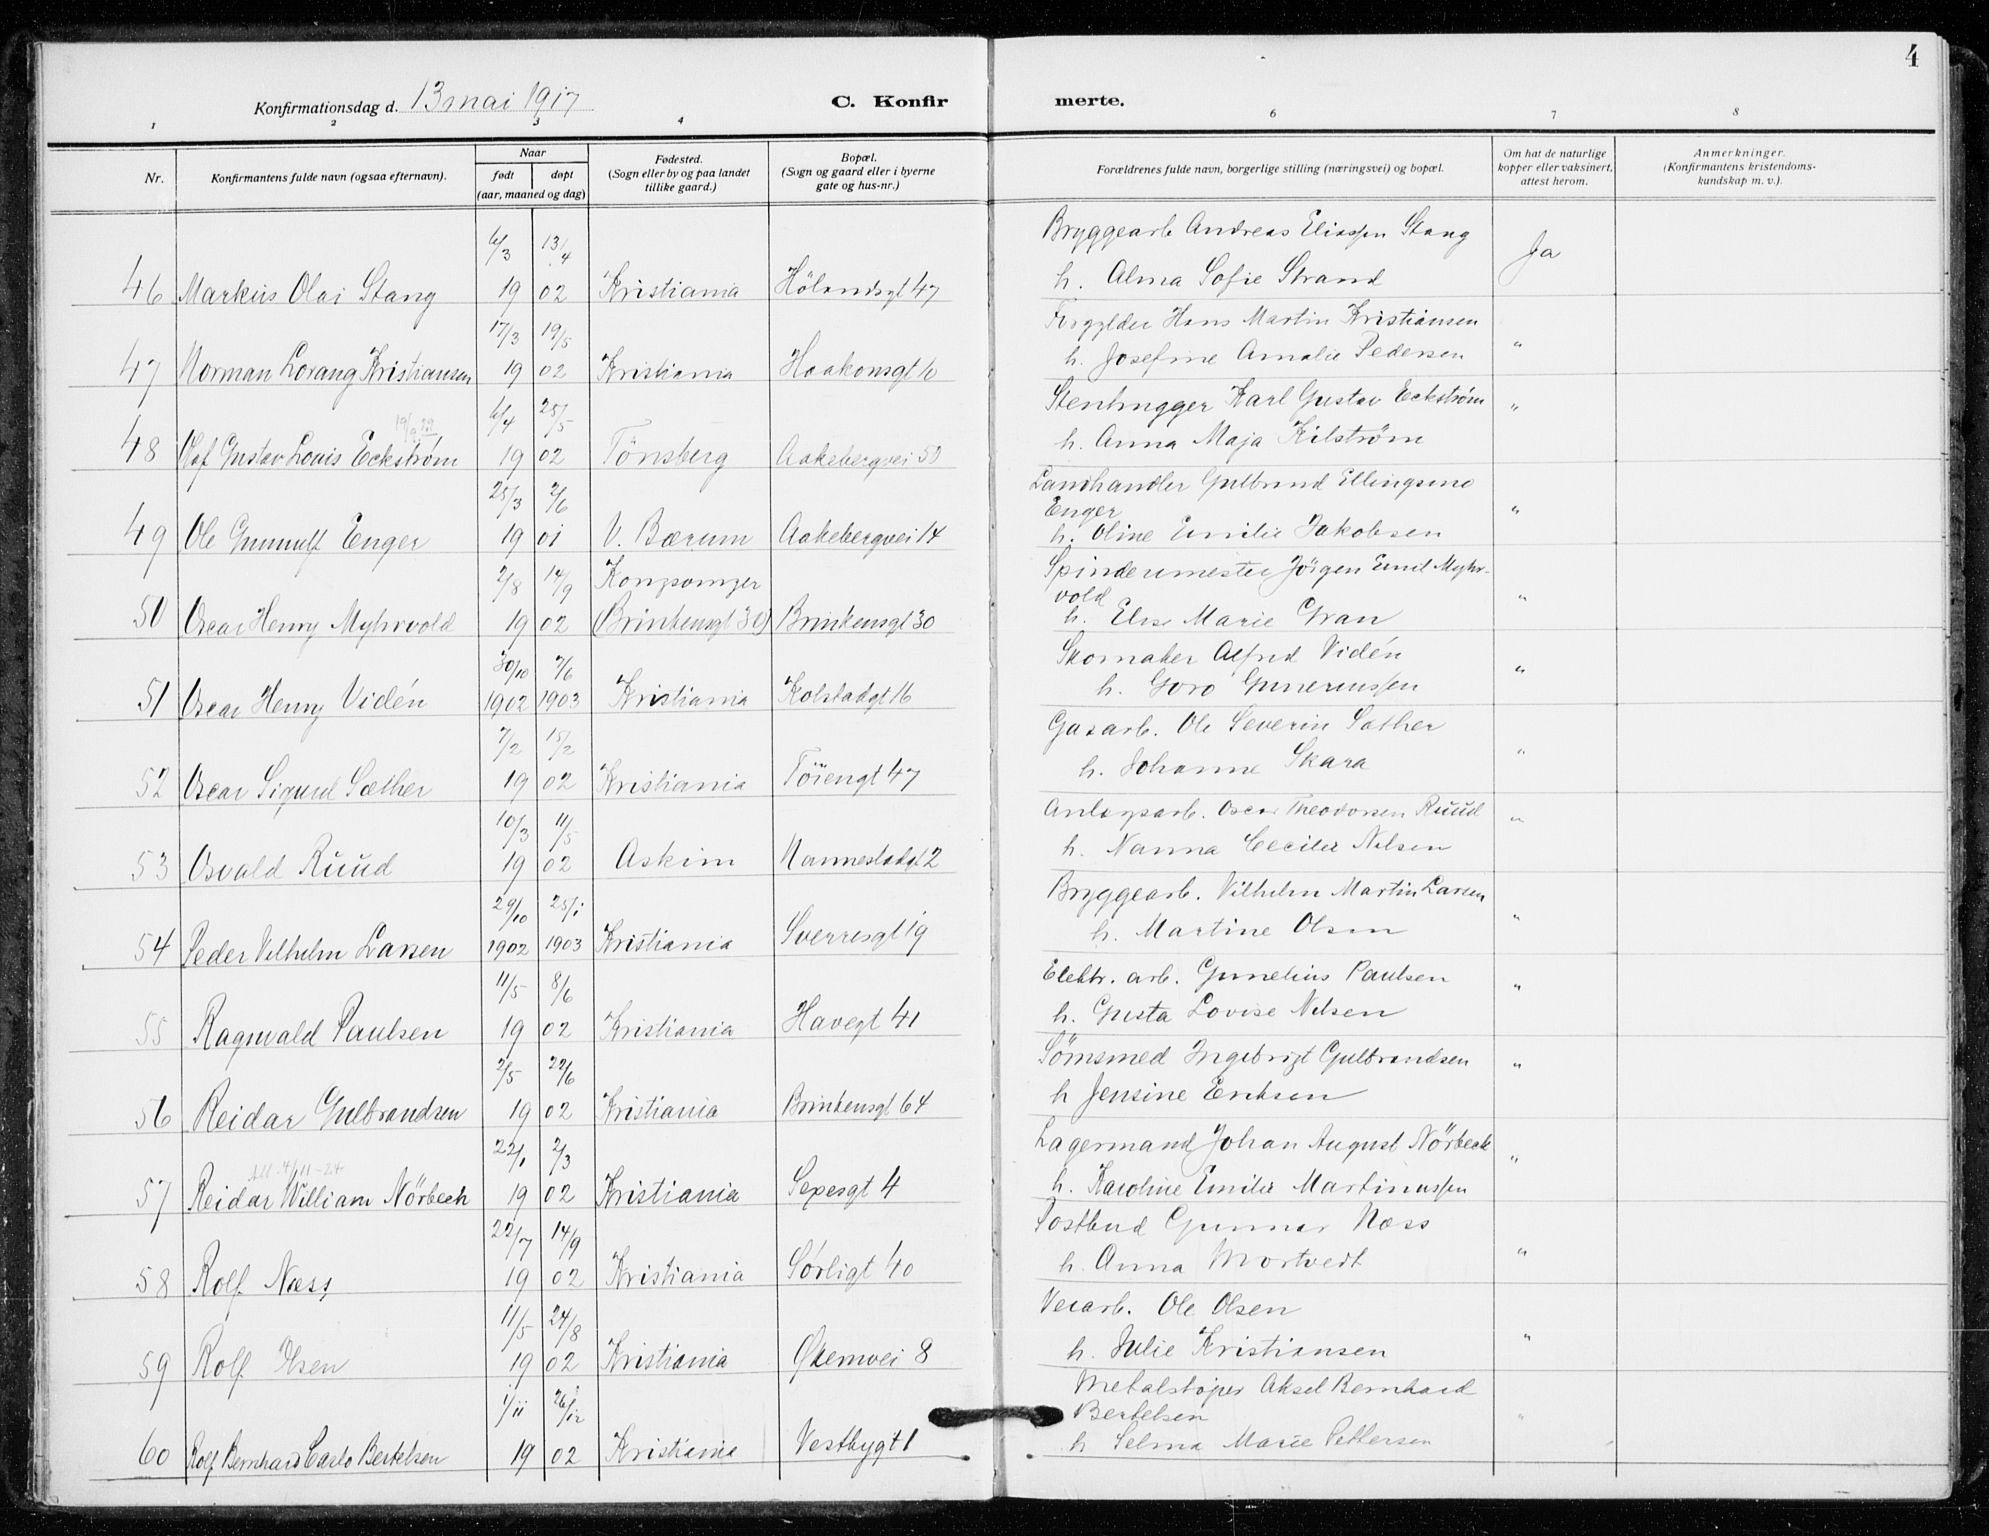 4
Konfirmationsdag d. 13 mai 1917
C. Konfir merte.
1 2 3 4 6 7 8
Nr. Konfirmantens fulde navn (ogsaa efternavn). Naar født døpt (aar, maaned og dag) Fødested. (Sogn eller by og paa landet tillike gaard.) Bopæl. (Sogn og gaard eller i byerne gate og hus-nr.) Forældrenes fulde navn, borgerlige stilling (næringsvei) og bopæl. Om hat de naturlige kopper eller vaksinert, attest herom. Anmerkninger. (Konfirmantens kristendomskundskap m. v.).
6/3 13/4 Bryggearb Andreas Eliassen Stang Ja
46 Markus Olai Stang 19 02 Kristiania Hölandsgt 47 h. Alma Sofie Strand
17/3 19/5 Forgylder Hans Martin Kristiansen
47 Norman Lorang Kristiansen 19 02 Kristiania Haakonsgt h. Josefine Amalie Pedersen "
19/9 22 6/4 25/5 Stenhugger Karl Gustav Eckström "
48 Olaf Gustav Louis Eckström 19 02 Tönsberg Aakebergvei h. Anna Maja Kilström
25/3 2/6 Landhandler Gulbrand Ellingsen
Enger "
49 Ole Gunnulf Enger 19 01 V. Bærum Aakebergvei 14 h. Oline Emilie Jakobsen
2/8 14/9 Kongsvinger Spinderimester Jörgen Emil Myhr-
vold "
50 Oscar Henry Myhrvold 19 02 (Brinkensgt 30) Brinkensgt 30 h. Elise Marie Gran
30/10 7/6 Skomaker Alfred Vidén "
51 Oscar Henry Vidén 1902 1903 Kristiania Kolstadgt 16 h. Goro Gunerussen
7/2 15/2 Gasarb. Ole Severin Sæther "
52 Oscar Sigurd Sæther 19 02 Kristiania Töiengt 47 h. Johanne Skara
10/3 11/5 Anlegsarb. Oscar Theodorsen Ruud "
53 Osvald Ruud 19 02 Askim Nannestadgt 2 h. Nanna Cecilie Nilsen
29/10 25/1 Bryggearb. Vilhelm Martin Larsen "
54 Peder Vilhelm Larsen 1902 1903 Kristiania Sverresgt 19 h. Martine Olsen
11/5 8/6 Elektr. arb. Gunelius Paulsen "
55 Ragnvald Paulsen 19 02 Kristiania Havegt 41 h. Gusta Lovise Nilsen
2/5 22/6 Sömsmed Ingebrigt Gulbrandsen "
56 Reidar Gulbrandsen 19 02 Kristiania Brinkensgt 64 h Jensine Eriksen
22/1 2/3 Lagermand Johan August Nörbech "
Att. 4/11-24
57 Reidar William Nörbech 19 02 Kristiania Sexesgt 4 h. Karoline Emilie Martinussen
22/7 14/9 Postbud Gunnar Næss
58 Rolf Næss 19 02 Kristiania Sörligt 40 h. Anna Mortvedt "
11/5 24/8 Veiarb. Ole Olsen
59 Rolf Olsen 19 02 Kristiania Økernvei 8 h. Julie Kristiansen "
1/11 26/12 Metalstöper Aksel Bernhard
Bertelsen "
60 Rolf Bernhard Carlo Bertelsen 19 02 Kristiania Vestbygt 1 h Selma Marie Pettersen